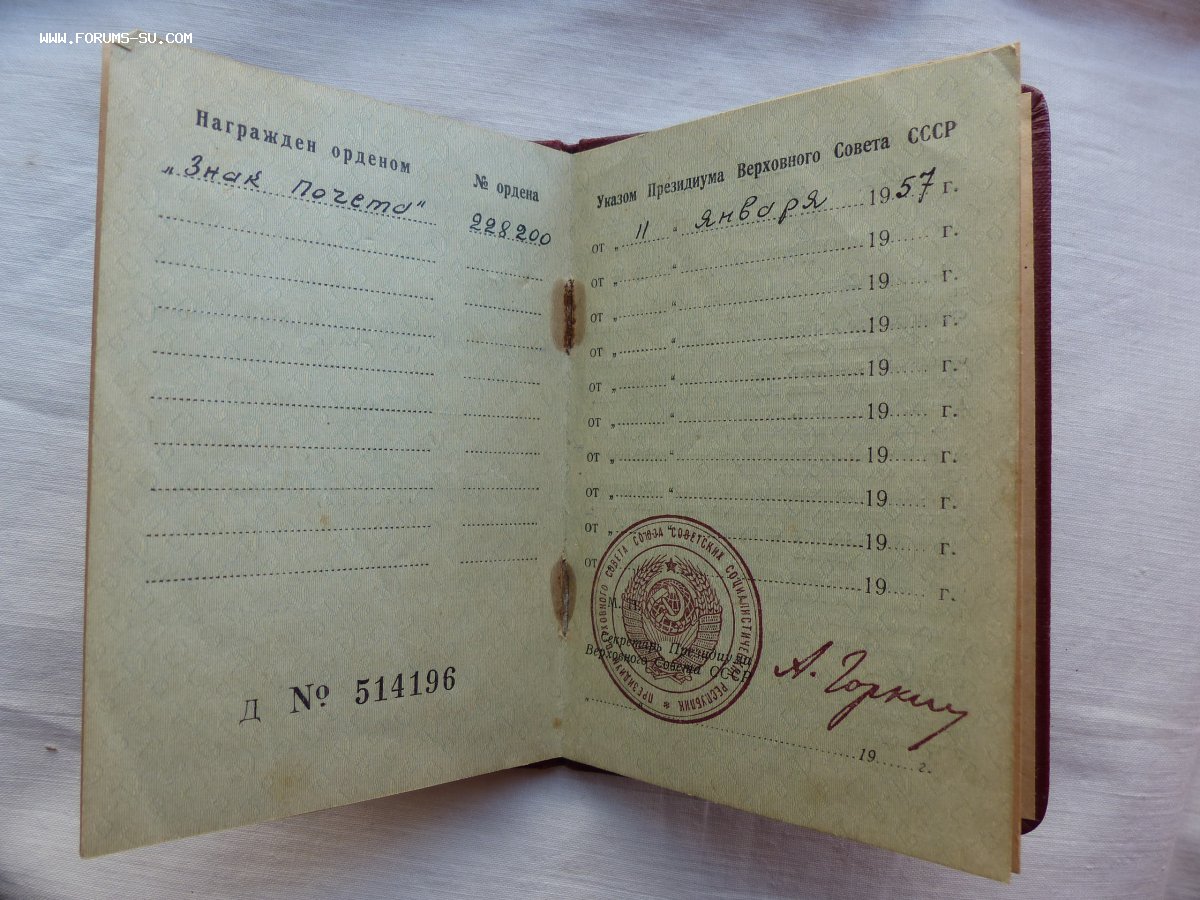 www.forums-su.com
Награжден орденом
№ ордена
„Знак почета"
228200
Д № 514196
Указом Президиума Верховного Совета СССР
от „ 11 " января 1957 г.
от „ " 19 г.
от „ " 19 г.
от „ " 19 г.
от „ " 19 г.
от „ " 19 г.
от „ " 19 г.
от „ " 19 г.
от „ " 19 г.
от „ " 19 г.
М. П.
Секретарь Президиума
Верховного Совета СССР
А. Горкин
19 г.
ПРЕЗИДИУМ ВЕРХОВНОГО СОВЕТА СОЮЗА СОВЕТСКИХ СОЦИАЛИСТИЧЕСКИХ РЕСПУБЛИК